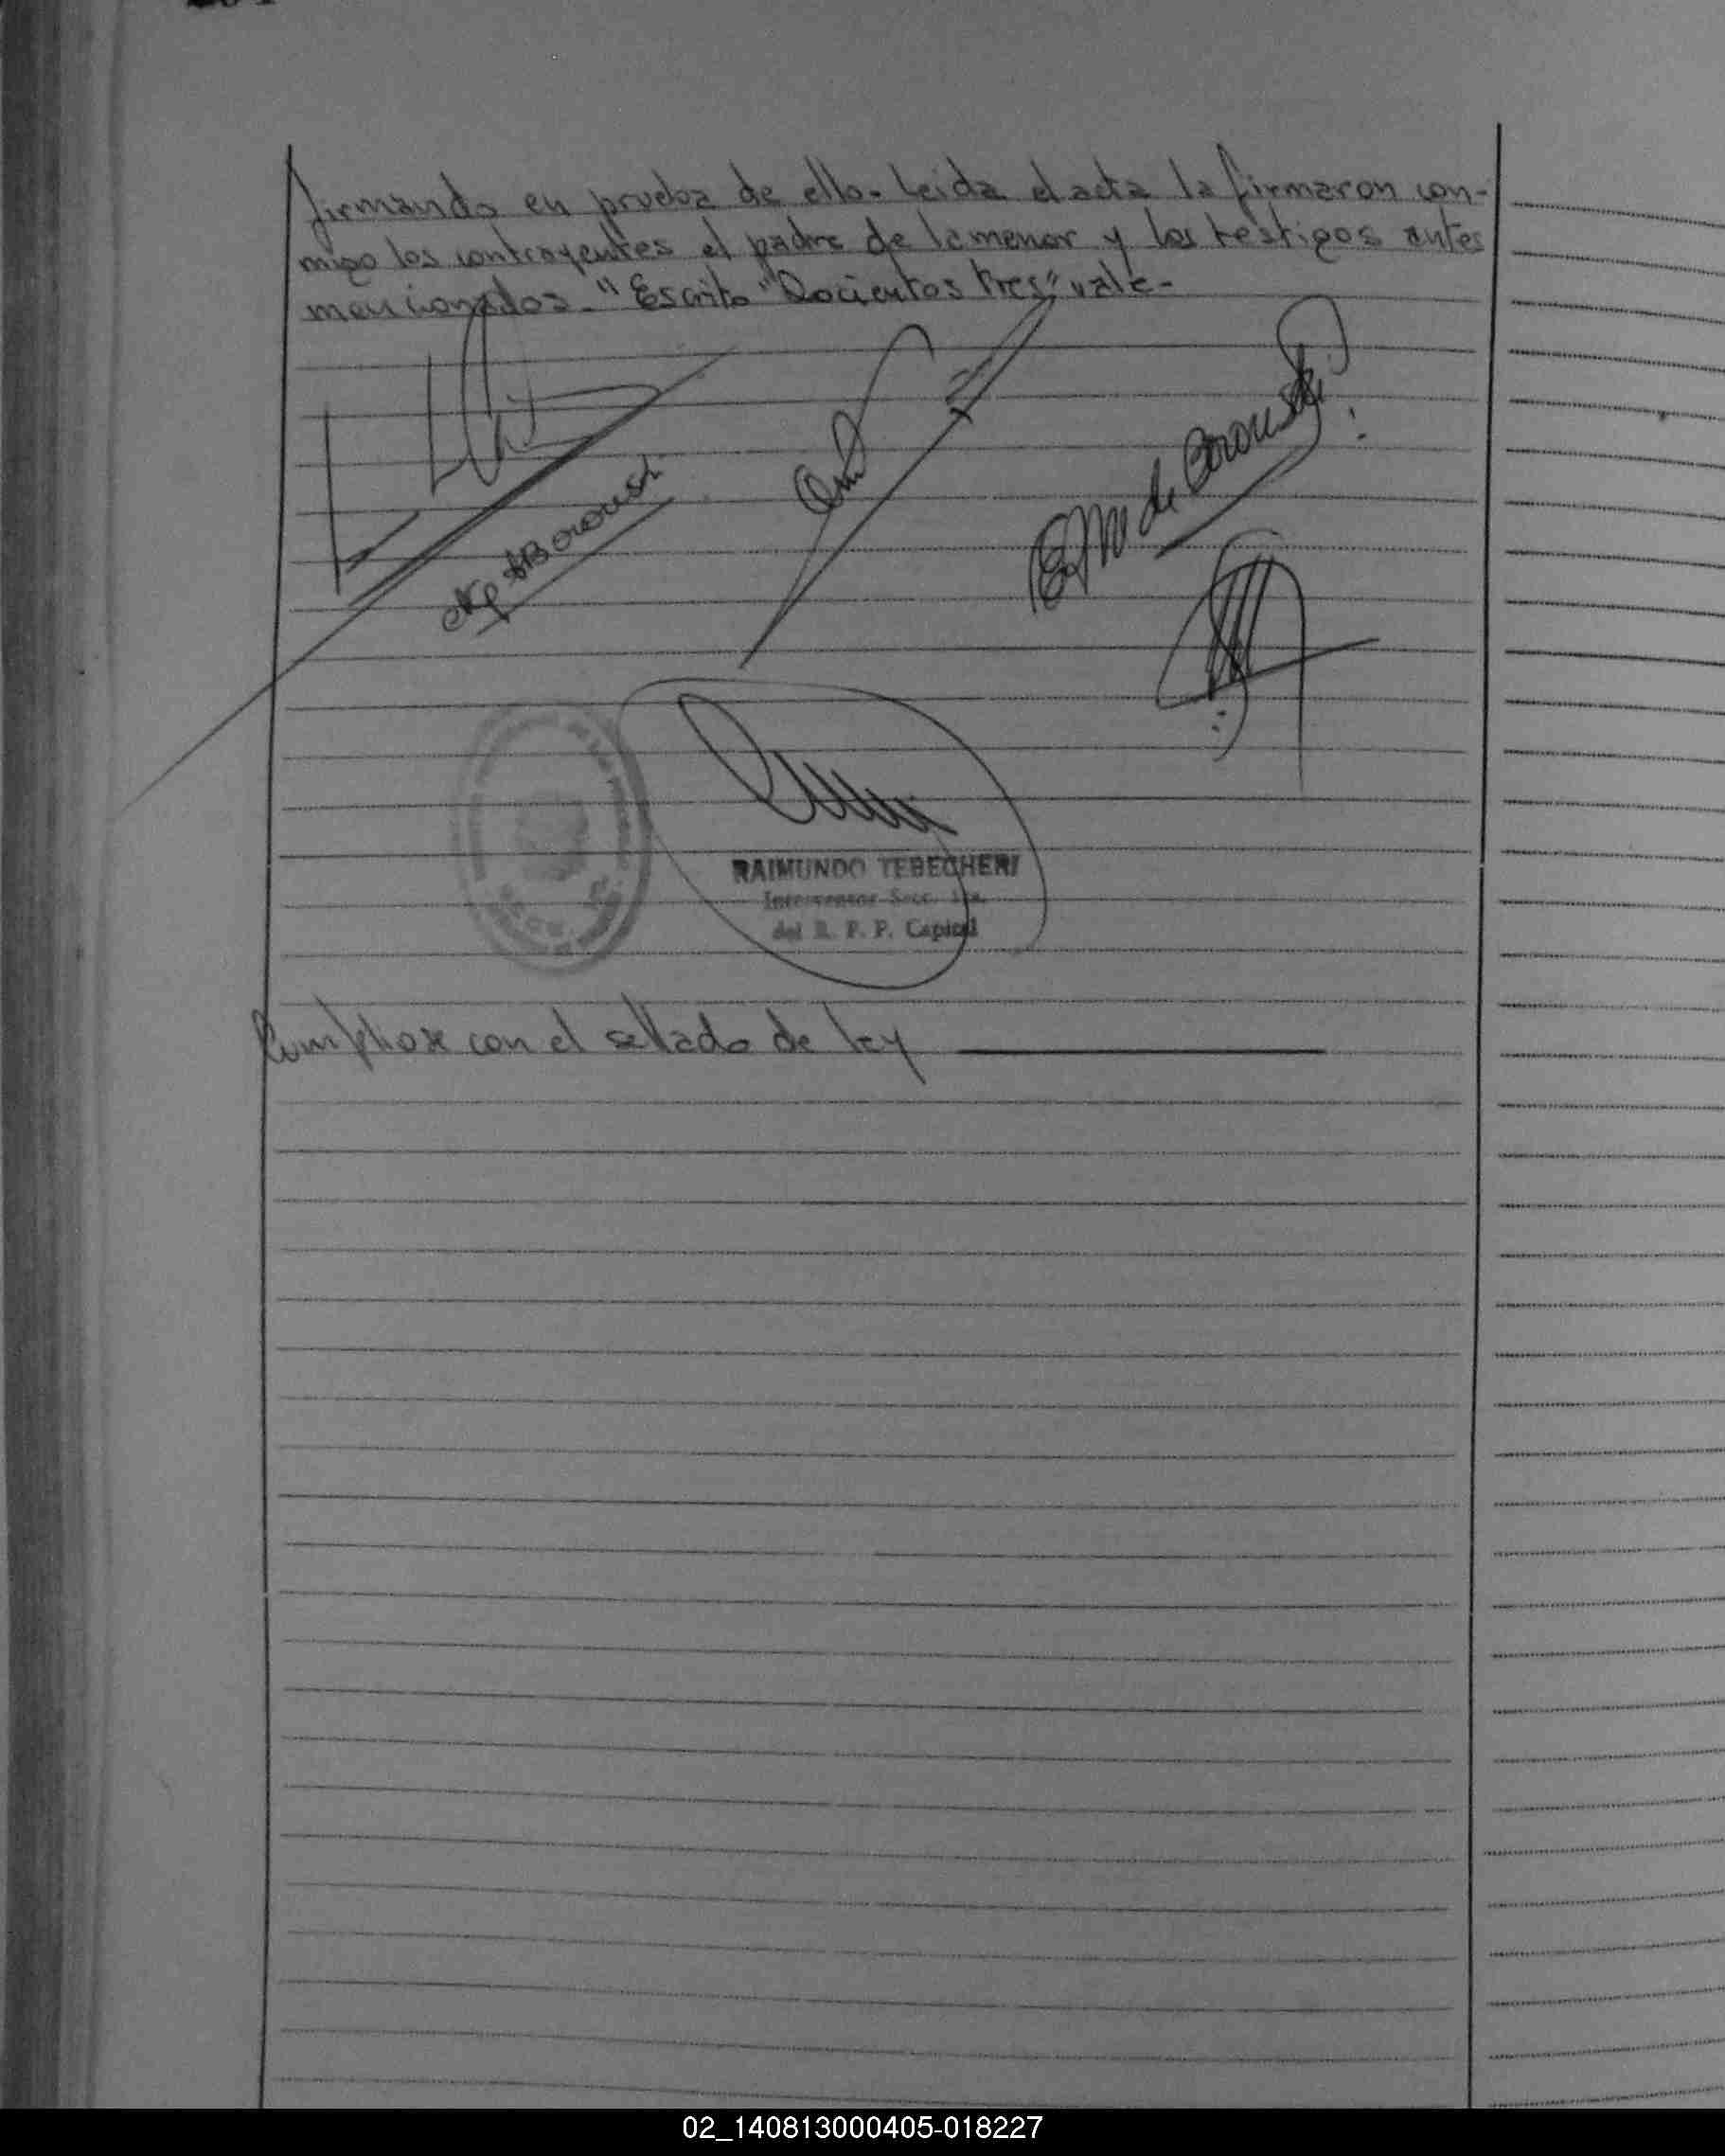 firmando en prueba de ello- Leida el acta la firmaron con-
migo los contrayentes el padre de la menor y los testigos antes
mencionados. "Escrito "Docientos tres" vale-
Borousk
E M de Borouski
RAIMUNDO TEBECHERI
Interventor Secc. 1ra.
del R. P. P. Capital
Cumpliose con el sellado de ley
02_140813000405-018227